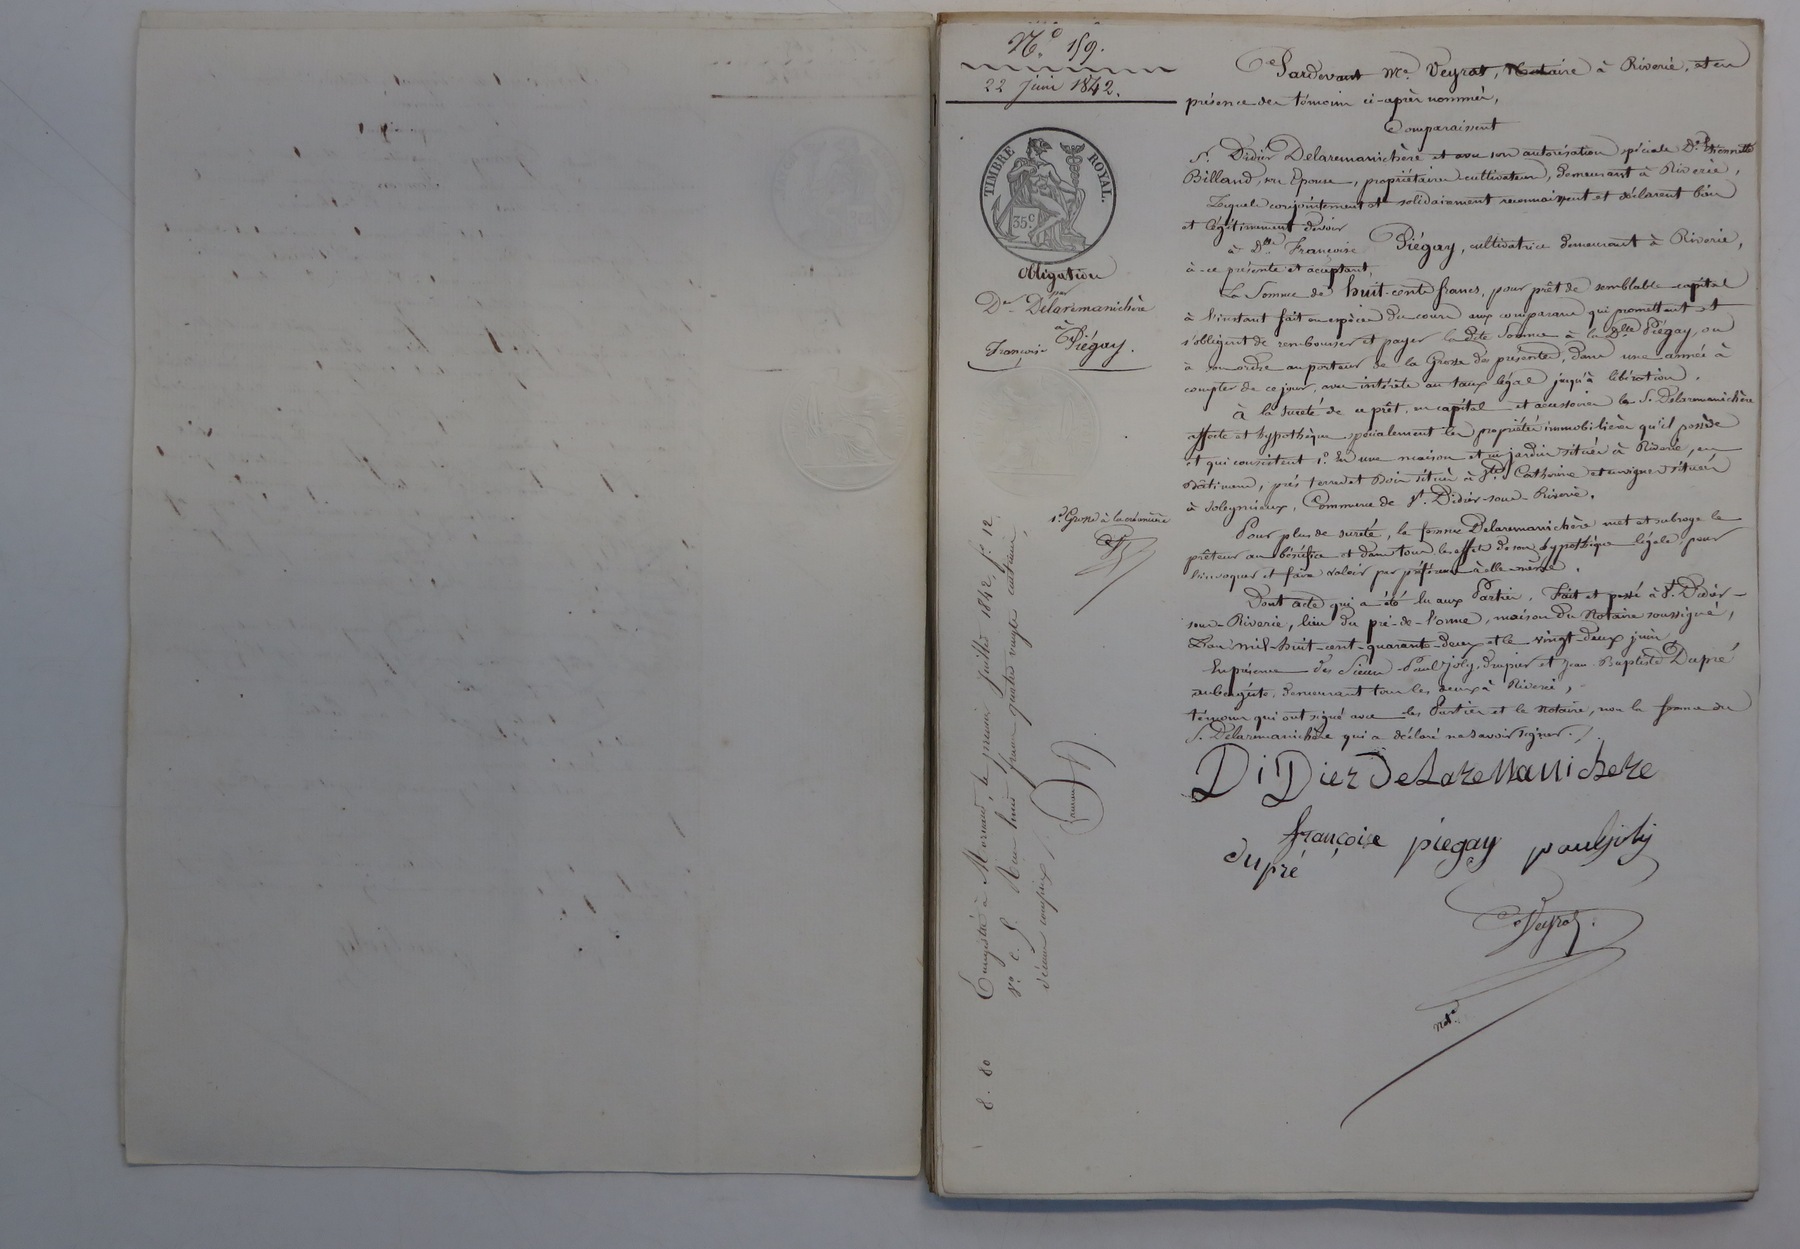 N.º 159.
22 juin 1842.
TIMBRE ROYAL.
35 c.
Obligation
par
Delaremanichère
à
Françoise Piégay.
1re Grosse à la créancière
Enregistré à Mornant, le premier juillet 1842, f.º 12
v.º c. 5. Reçu huit francs quatre vingts centimes,
décime compris.
8. 80
Pardevant Me. Veyrat, Notaire à Riverie, et en
présence des témoins ci-après nommés,
Comparaissent
S. Didier Delaremanichère et avec son autorisation spéciale De. Etiennette
Billand, son Epouse, propriétaires-cultivateurs, demeurant à Riverie,
Lesquels conjointement et solidairement reconnaissent et déclarent bien
et légitimement devoir
à Dlle Françoise Piégay, cultivatrice demeurant à Riverie,
à ce présente et acceptant,
La Somme de huit-cents francs, pour prêt de semblable capital
à l'instant fait en espèces du cours aux comparans qui promettent et
s'obligent de rembourser et payer la dite Somme à la Dlle Piégay, ou
à son ordre au porteur de la Grosse des présentes, dans une année à
compter de ce jour, avec intérêts au taux légal jusqu'à libération.
à la sureté de ce prêt, en capital et accessoires le S. Delaremanichère
affecte et hypothèque spécialement les propriétés immobilières qu'il possède
et qui consistent 1.º En une maison et un jardin situés à Riverie, en
Bâtimens, prés terres et Bois situés à Ste Catherine et en vignes situées
à Soleymieux, Commune de St. Didier-sous-Riverie.
Pour plus de sureté, la femme Delaremanichère met et subroge le
prêteur au bénéfice et dans tous les effets de son hypothèque légale, pour
l'invoquer et faire valoir par préférence à elle-même.
Dont acte qui a été lu aux Parties. Fait et passé à St. Didier-
sous-Riverie, lieu du pré-de-l'orme, maison du Notaire soussigné,
L'an mil-huit-cent-quarante-deux et le vingt-deux juin,
En présence des Sieurs Paul Joly, drapier et Jean-Baptiste Dupré
aubergiste, demeurant tous les deux à Riverie,
témoins qui ont signé avec les Parties et le Notaire, non la femme du
S. Delaremanichère qui a déclaré ne savoir signer.
DiDier DeLaremanichere
françoise piegay paul joly
dupré
Veyrat
Nre